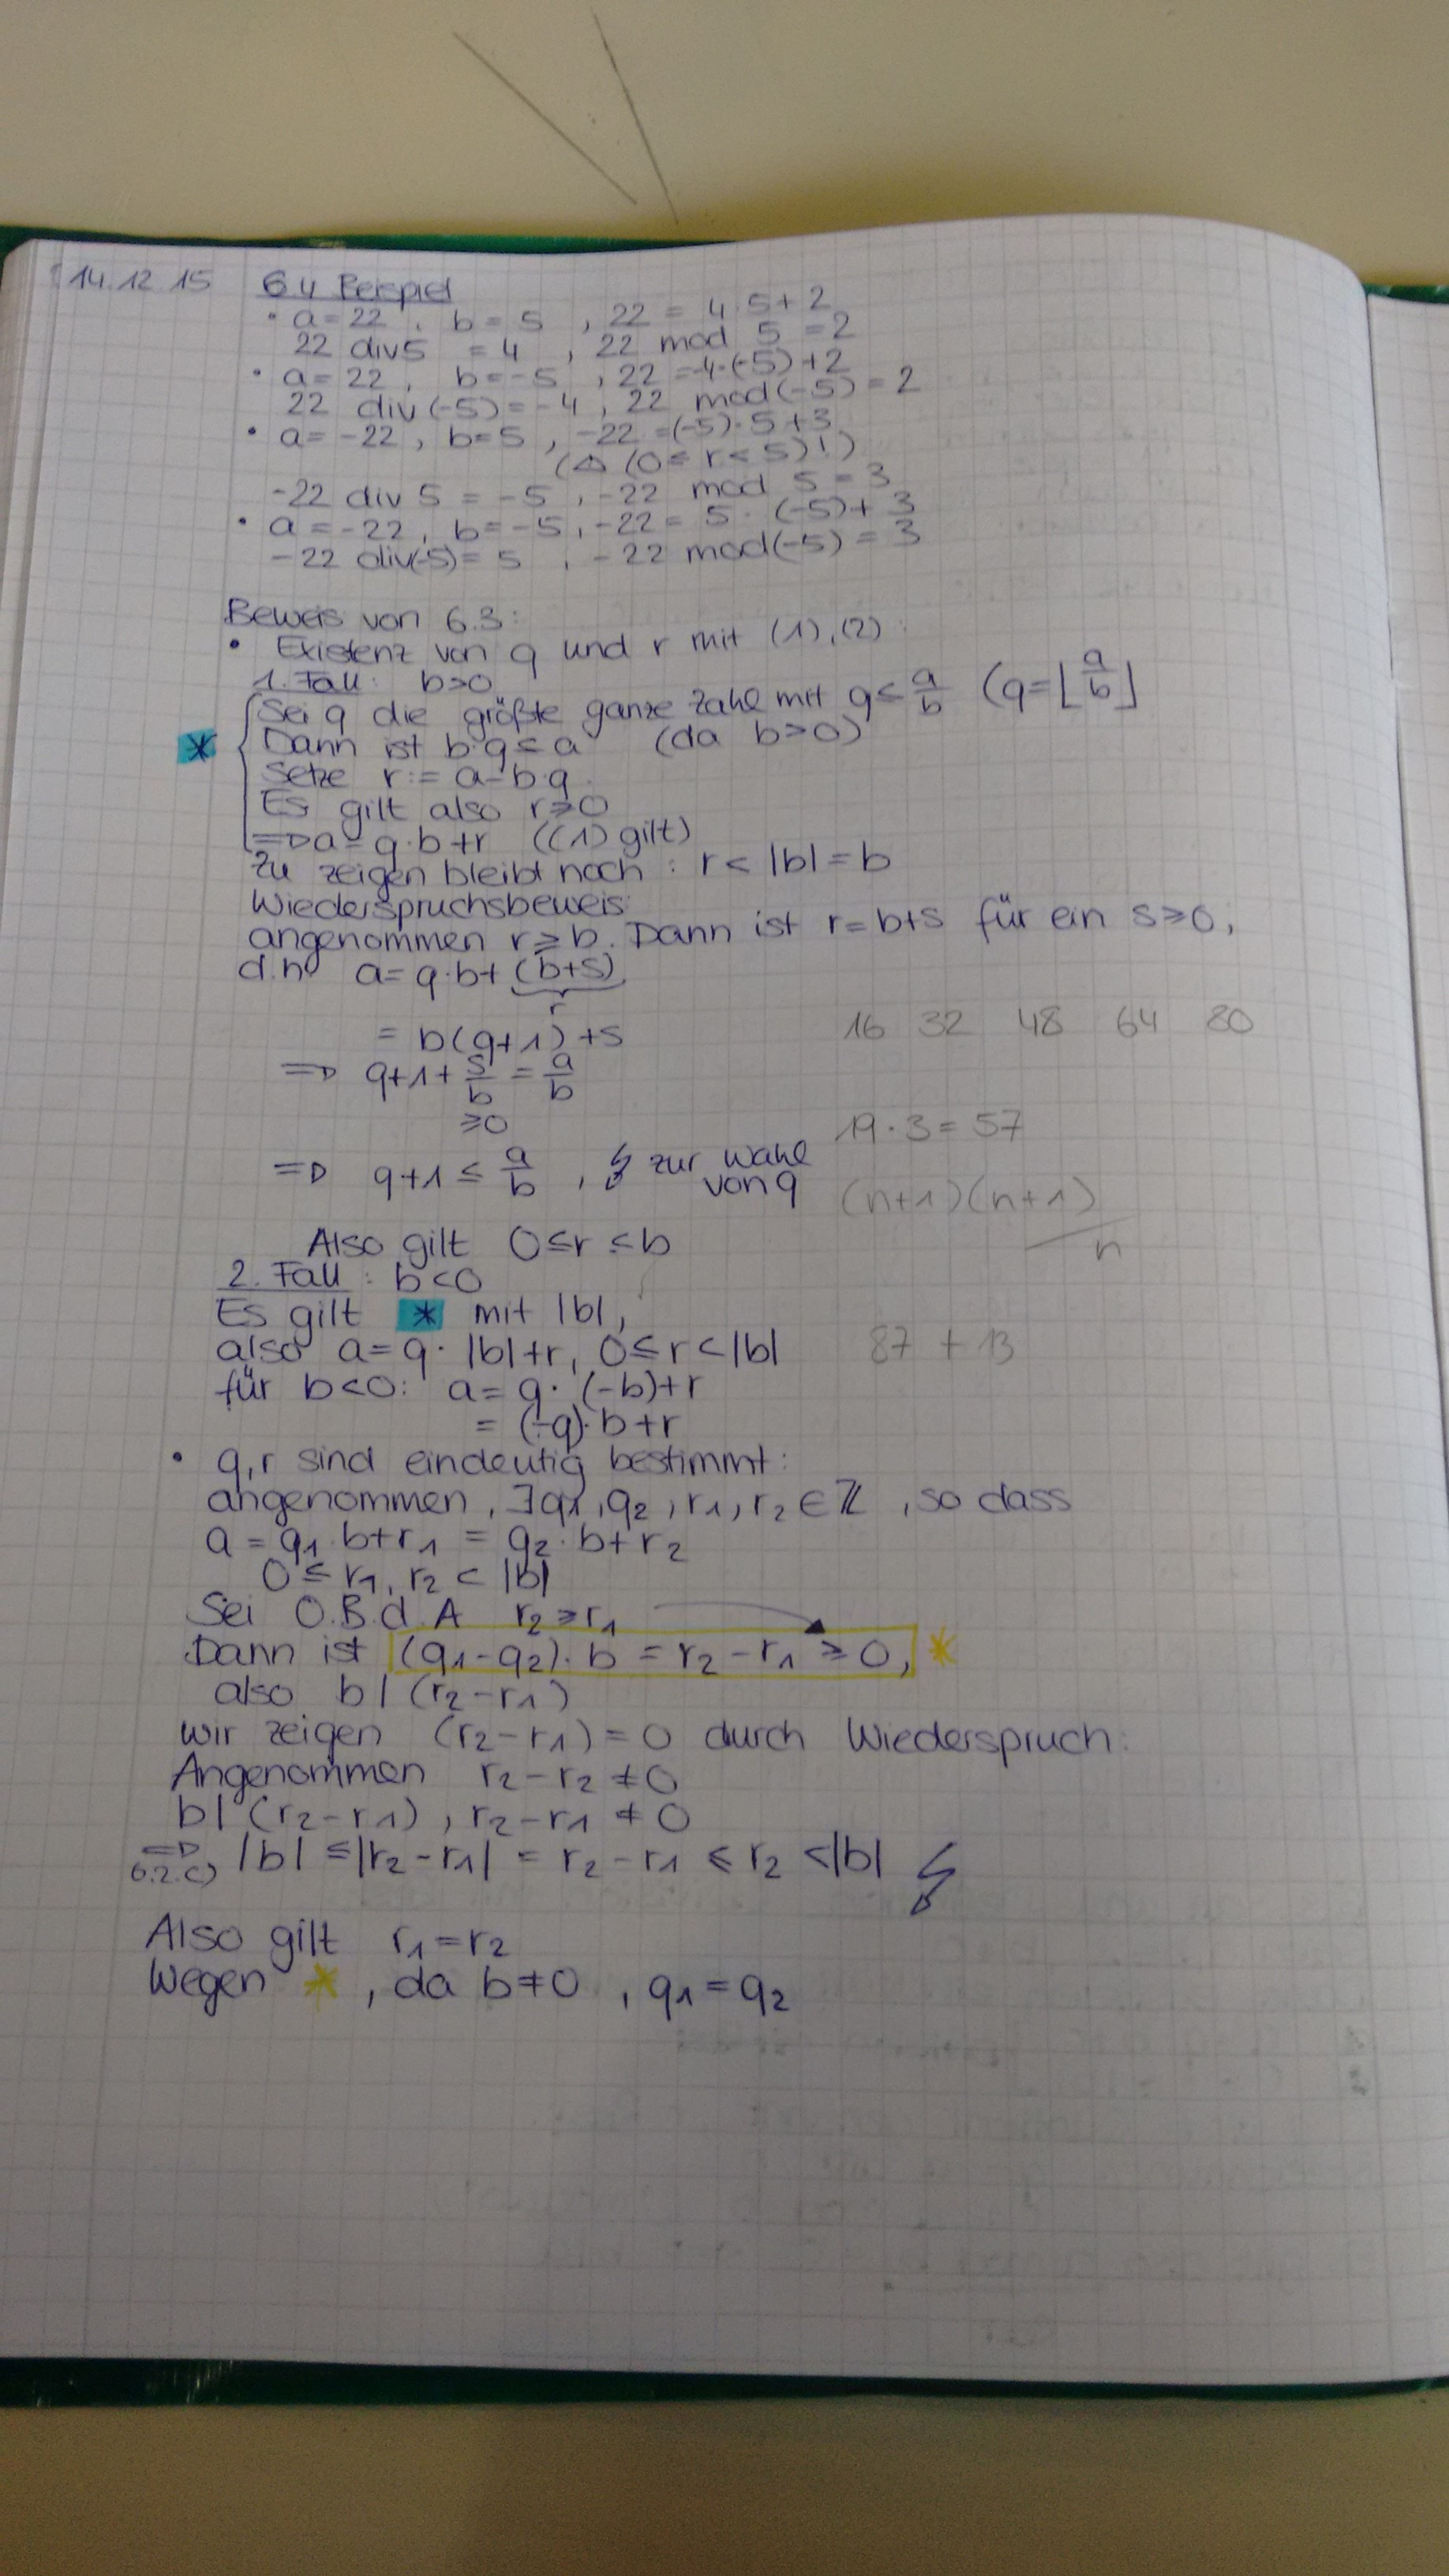 14.12.15 6.4 Beispiel
• a=22, b=5, 22 = 4·5+2
22 div 5 = 4, 22 mod 5 = 2
• a=22, b=-5, 22 = -4·(-5)+2
22 div (-5) = -4, 22 mod (-5) = 2
• a=-22, b=5, -22 = (-5)·5+3
(⚠ (0≤r<5)!)
-22 div 5 = -5, -22 mod 5 = 3
• a=-22, b=-5, -22 = 5·(-5)+3
-22 div(-5) = 5, -22 mod(-5) = 3
Beweis von 6.3:
• Existenz von q und r mit (1),(2):
1. Fall: b>0
Sei q die größte ganze Zahl mit q≤a/b (q=⌊a/b⌋
* Dann ist b·q≤a (da b>0)
Setze r:= a-b·q.
Es gilt also r≥0
=> a=q·b+r ((1) gilt)
Zu zeigen bleibt noch: r<|b|=b
Wiederspruchsbeweis:
angenommen r≥b. Dann ist r=b+s für ein s≥0,
d.h. a=q·b+(b+s)
r
= b(q+1)+s
16 32 48 64 80
=> q+1+s/b = a/b
≥0
19·3=57
=> q+1≤a/b, ↯ zur Wahl
von q
(n+1)(n+1)
n
Also gilt 0≤r<b
2. Fall: b<0
Es gilt * mit |b|,
also a=q·|b|+r, 0≤r<|b|
87+13
für b<0: a=q·(-b)+r
= (-q)·b+r
• q,r sind eindeutig bestimmt:
angenommen, ∃q1,q2,r1,r2∈ℤ, so dass
a=q1·b+r1 = q2·b+r2
0≤r1,r2<|b|
Sei O.B.d.A r2≥r1
Dann ist (q1-q2)·b = r2-r1 ≥0, *
also b|(r2-r1)
wir zeigen (r2-r1)=0 durch Wiederspruch:
Angenommen r2-r2≠0
b|(r2-r1), r2-r1≠0
=> |b|≤|r2-r1| = r2-r1 ≤ r2 <|b| ↯
6.2.c)
Also gilt r1=r2
Wegen *, da b≠0, q1=q2